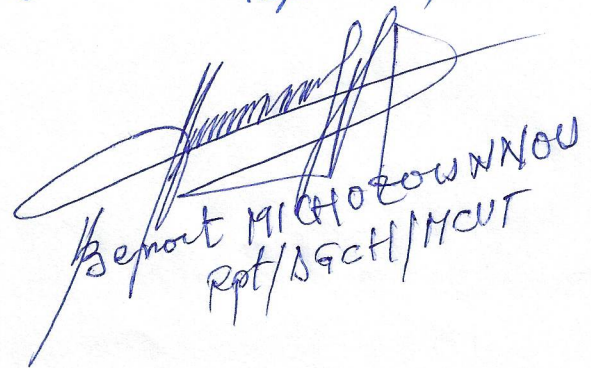 Benoit MICHOZOUNNOU
Rpt/DGCH/MCVT